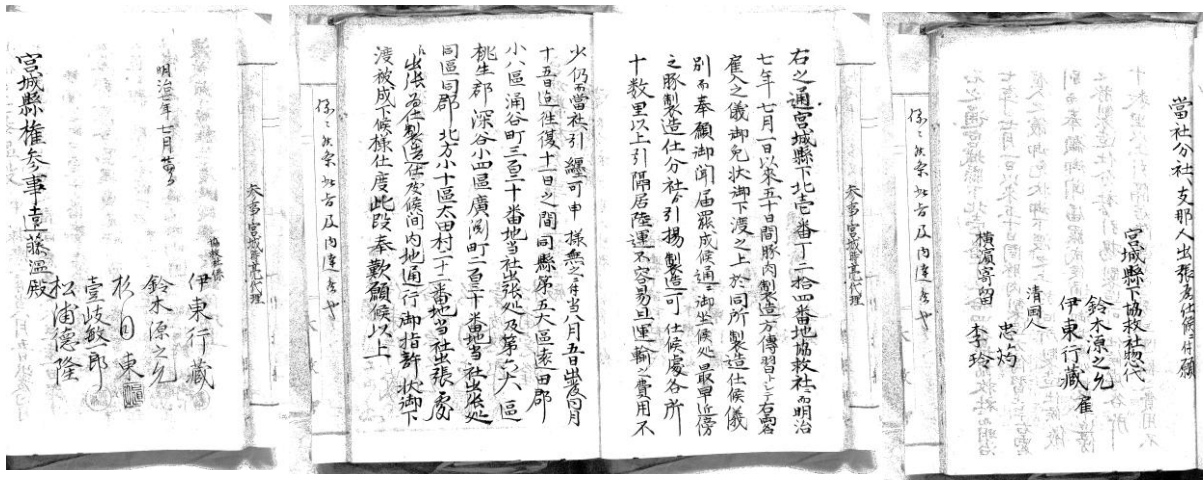 當社分社ゟ支那人出張為仕候ニ付願
宮城縣下協救社惣代
鈴木源之允
伊東行蔵雇
清國人
忠灼
横濱寄留
李玲
右之通宮城縣下北壱番丁二拾四番地協救社ニ而明治
七年七月一日以来五十日間豚肉製造方傳習トシテ右両名
雇入之儀御免状御下渡之上於同所製造仕候儀
別而奉願御聞届罷成候通ニ御坐候処最早近傍
之豚製造仕分社ゟ引揚製造可仕候處各所
十数里以上引隔居陸運不容易且運輸之費用不
少仍而當社引纏可申様無之ニ付当八月五日出發同月
十五日迄往復十一日之間同縣第五大區遠田郡
小八區涌谷町三百三十番地当社出張処及第六大區
桃生郡深谷小四區廣渕町二百三十番地当社出張処
同區同郡北方小十區太田村二十一番地当社出張處
ヘ出張為仕製造仕度候間内地通行御指許状御下
渡被成下候様仕度此段奉歎願候以上
明治七年七月
協救社
伊東行蔵
鈴木源之允
杉田東
壹岐敏郎
松浦德隆
宮城縣権参事遠藤温殿